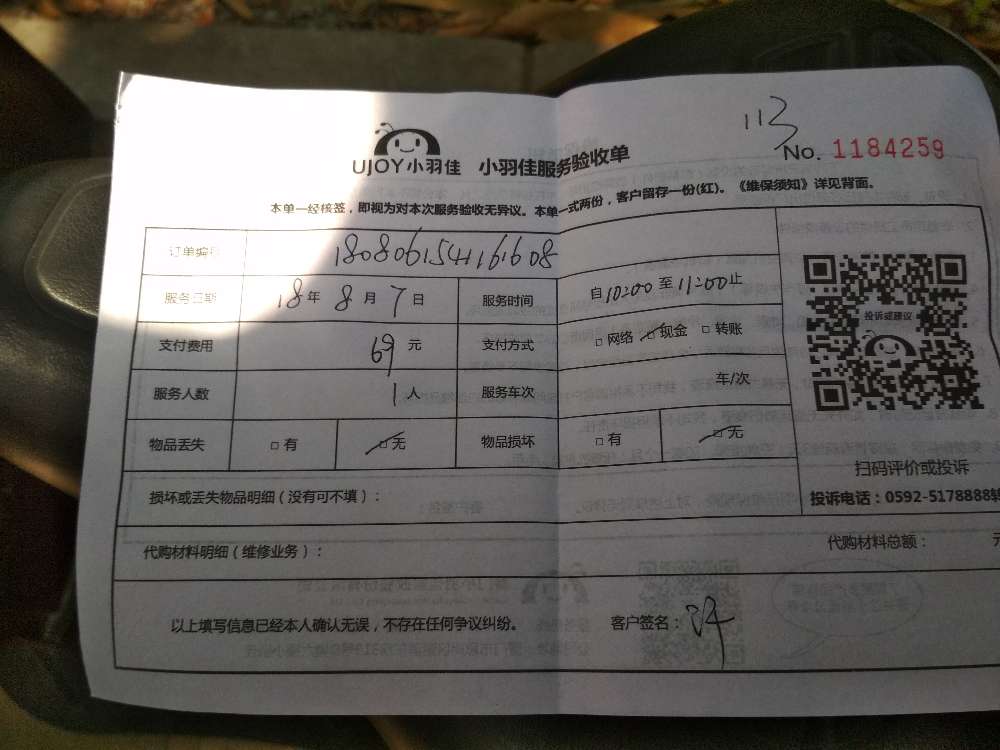 113
No. 1184259
UJOY小羽佳 小羽佳服务验收单
本单一经核签，即视为对本次服务验收无异议。本单一式两份，客户留存一份(红)。《维保须知》详见背面。
订单编号 1808061541161908
服务日期 18年8月7日 服务时间 自10:00至11:00止
支付费用 69元 支付方式 □网络 ☑现金 □转账
投诉或建议
服务人数 1人 服务车次 车/次
物品丢失 □有 ☑无 物品损坏 □有 ☑无
扫码评价或投诉
损坏或丢失物品明细（没有可不填）：
投诉电话：0592-5178888转
代购材料明细（维修业务）： 代购材料总额： 元
以上填写信息已经本人确认无误，不存在任何争议纠纷。 客户签名：